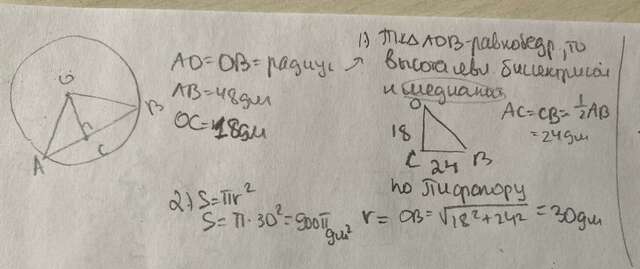 O
A
B
C
AO=OB=радиус
AB=48дм
OC=18дм
1) Т.к Δ AOB-равнобедр, то
высота явл. биссектрисой
и медианой
O
18
C 24 B
AC=CB=½AB
=24дм
по Пифагору
r= OB=√18²+24² =30дм
2) S=πr²
S=π·30²=900π дм²